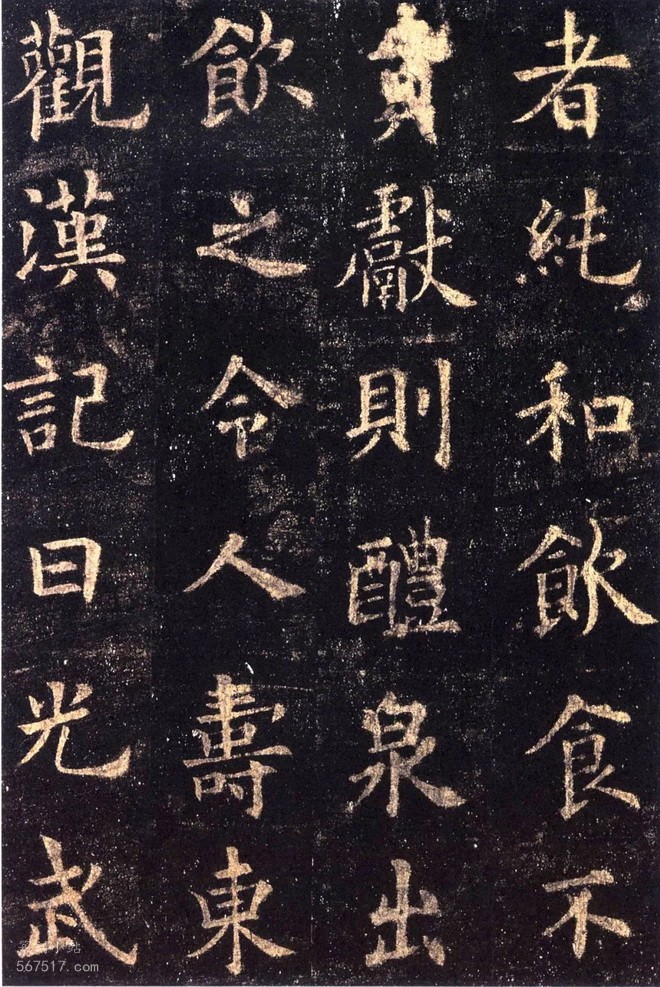 者純和飲食不
貢獻則醴泉出
飲之令人壽東
觀漢記曰光武
567517.com